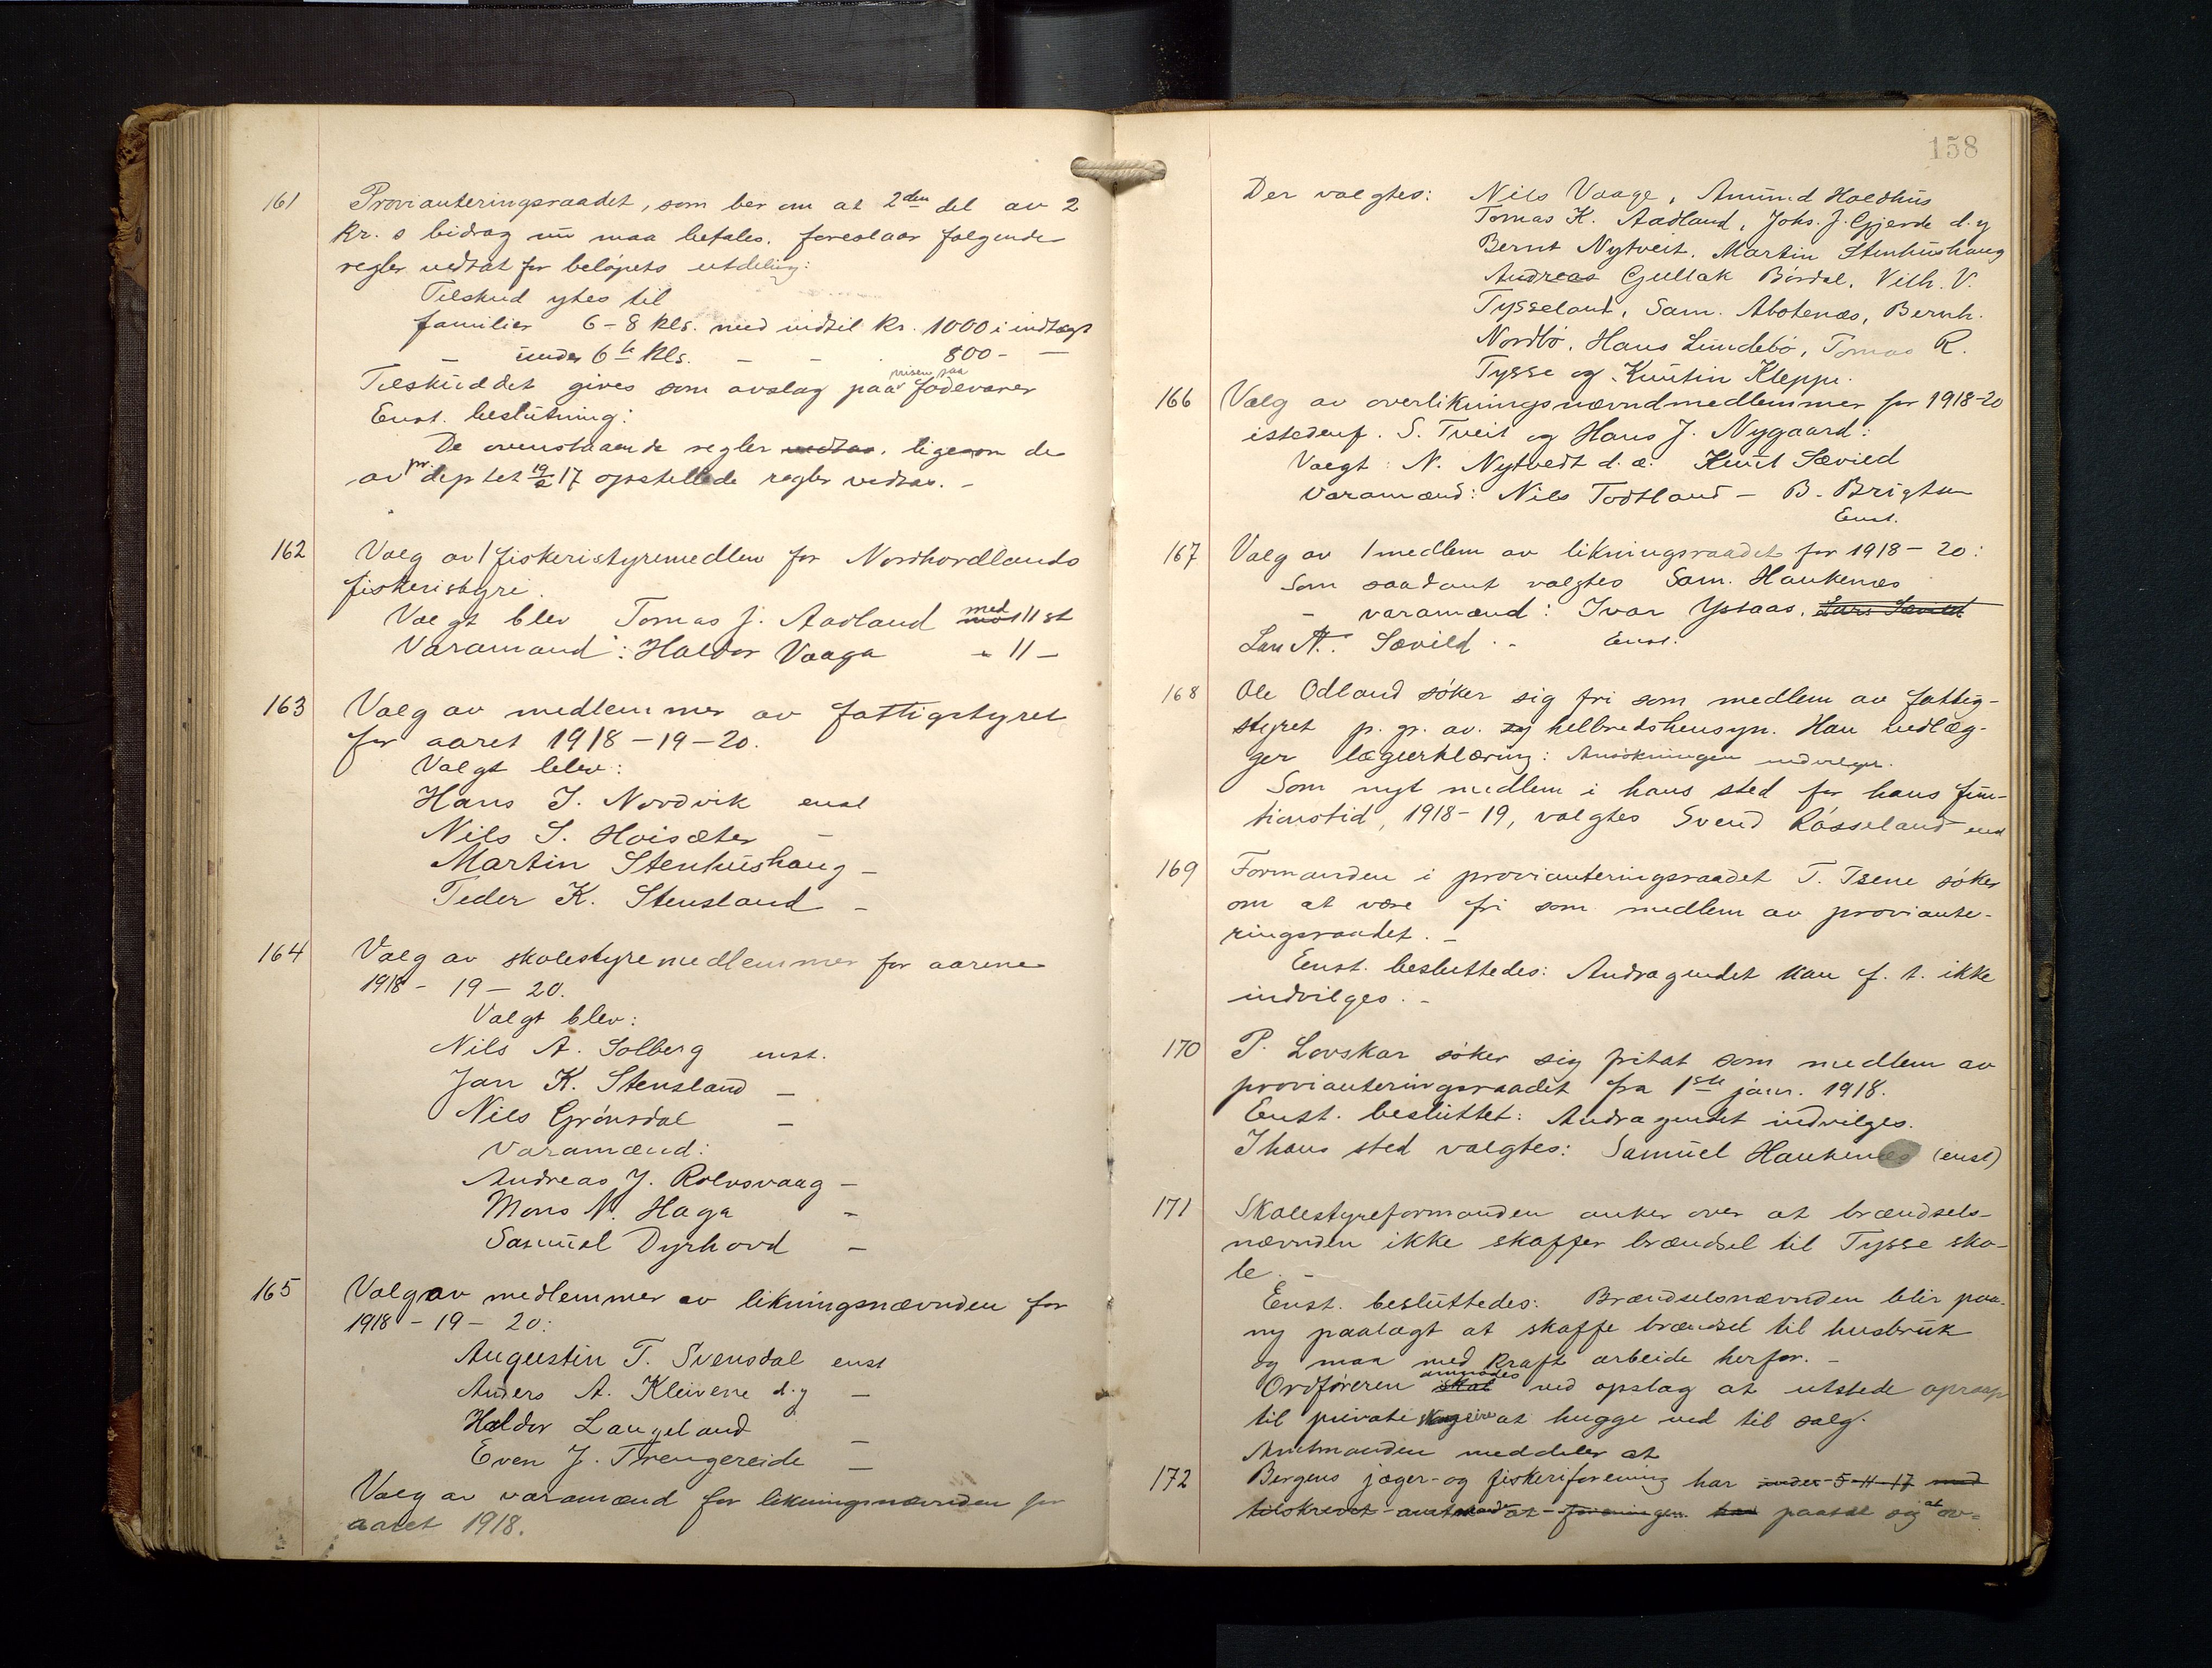 161 Provianteringsraadet, som ber om at 2den del av 2
kr.s bidrag nu maa betales, foreslaar følgende
regler vedtat for beløpets utdeling:
Tilskud ytes til
familier 6-8 kls. med indtil kr. 1000 i indtægt
— under 6te kls. — — 800- —
prisen paa
Tilskuddet gives som avslag paa fødevarer
Enst. beslutning:
De ovenstaaende regler vedtas, ligesom de
av pr. dep tet 19/2 17 opstellede regler vedtas. -
162 Valg av 1 fiskeristyremedlem for Nordhordlands
fiskeristyre.
Valgt blev Tomas J. Aadland med 11 st
Varamand: Haldor Vaage - 11 -
163 Valg av medlemmer av fattigstyret
for aaret 1918-19-20.
Valgt blev:
Hans J. Nordvik enst
Nils S. Hoisæter -
Martin Stenhushaug -
Peder K. Stensland -
164 Valg av skolestyremedlemmer for aarene
1918 - 19 - 20.
Valgt blev:
Nils A. Solberg enst.
Jan K. Stensland -
Nils Grønsdal -
Varamænd:
Andreas J. Rolvsvaag -
Mons N. Haga -
Samuel Dyrhovd -
165 Valg av medlemmer av likningsnævnden for
1918 - 19 - 20:
Augustin T. Svensdal enst
Anders A. Kleivene d.y -
Haldor Langeland -
Even J. Trengereide -
Valg av varamænd for likningsnævnden for
aaret 1918.
158
Der valgtes: Nils Vaage, Amund Holdhus
Tomas K. Aadland, Johs. J. Gjerde d.y
Bernt Nytveit, Martin Stenhushaug
Andreas Gullak Børdal, Vilh. V.
Tysseland, Sam. Abotenæs, Bernh.
Nordbø, Hans Lundebø, Tomas R.
Tysse og Kleppe.
166 Valg av overlikningsnævndmedlemmer for 1918-20
istedenf. S. Tveit og Hans J. Nygaard:
Valgt: N. Nytvedt d.æ. Knut Sævild
Varamænd: Nils Todtland - B.
Enst.
167 Valg av 1 medlem av likningsraadet for 1918-20:
Som saadant valgtes Sam. Haukenæs
- varamænd: Ivar Ystaas, Lars Sævild
Lars A. Sævild - Enst.
168 Ole Odland søker sig fri som medlem av fattig-
styret p. gr. av helbredshensyn. Han vedlæg-
ger lægeerklæring: Ansøkningen indvilges.
Som nyt medlem i hans sted for hans funk-
tionstid, 1918-19, valgtes Svend Røsseland enst
169 Formanden i provianteringsraadet T. Tsene søker
om at være fri som medlem av proviante-
ringsraadet. -
Enst. besluttedes: Andragendet kan f. t. ikke
indvilges. -
170 P. Lovskar søker sig fritat som medlem av
provianteringsraadet fra 1ste jan. 1918.
Enst. besluttet: Andragendet indvilges.
I hans sted valgtes: Samuel Haukenæs (enst)
171 Skolestyreformanden anker over at brændsels-
nævnden ikke skaffer brændsel til Tysse sko-
le. -
Enst. besluttedes: Brændselsnævnden blir paa-
ny paalagt at skaffe brændsel til husbruk
og maa med kraft arbeide herfor. -
anmodes
Ordføreren skal ved opslag at utstede oprop
til private skogeire at hugge ved til salg.
Amtmanden meddeler at
172 Bergens jæger- og fiskeriforening har under 5-11-17 med
tilskrevet amtmanden at foreningen har paatat sig at av-